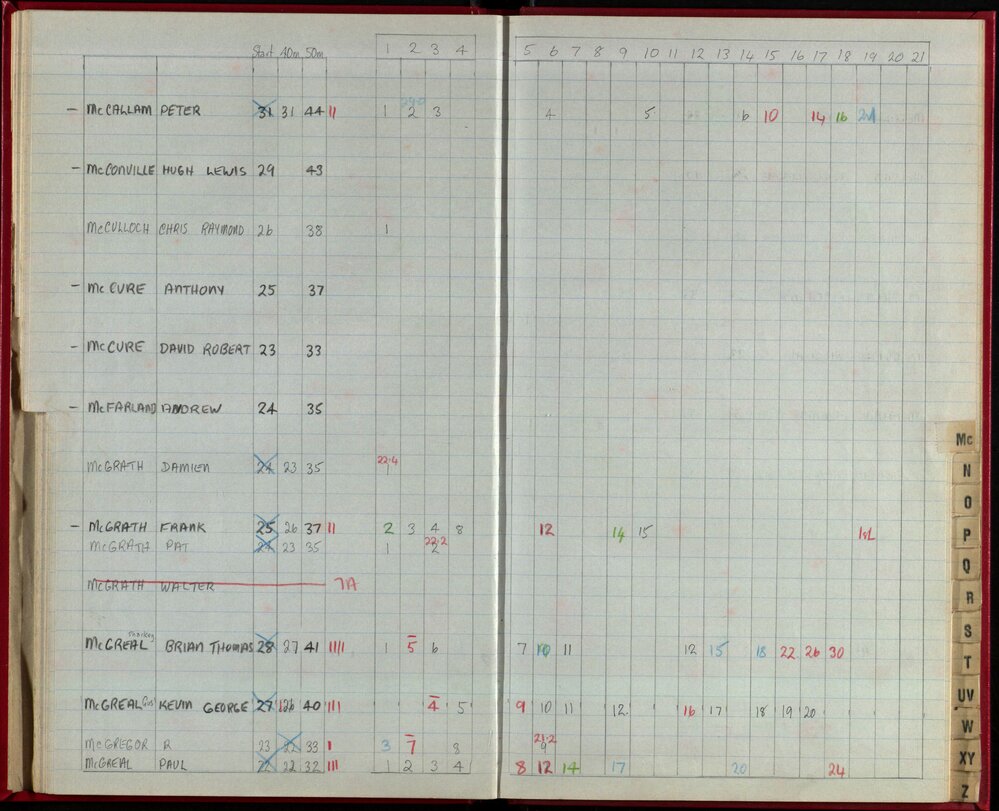 Start 40m 50m 1 2 3 4 5 6 7 8 9 10 11 12 13 14 15 16 17 18 19 20 21
— McCALLAM PETER 31 31 44 11 1 2 3 4 5 6 10 14 16
— McCONVILLE HUGH LEWIS 29 43
McCULLOCH CHRIS RAYMOND 26 38 1
— McCURE ANTHONY 25 37
— McCURE DAVID ROBERT 23 33
— McFARLAND ANDREW 24 35
22.4
McGRATH DAMIEN 24 23 35 1
— McGRATH FRANK 25 26 37 11 2 3 4 8 12 14 15 1st
22.2
McGRATH PAT 24 23 35 1 2
McGRATH WALTER 7A
Sharkey
McGREAL BRIAN THOMAS 28 27 41 1111 1 5 6 7 10 11 12 15 18 22 26 30
McGREAL "Gus" KEVIN GEORGE 27 26 40 111 4 5 9 10 11 12 16 17 18 19 20
21.2
McGREGOR R 23 22 33 1 3 7 8 9
McGREAL PAUL 22 22 32 111 1 2 3 4 8 12 14 17 20 24
Mc
N
O
P
Q
R
S
T
UV
W
XY
Z